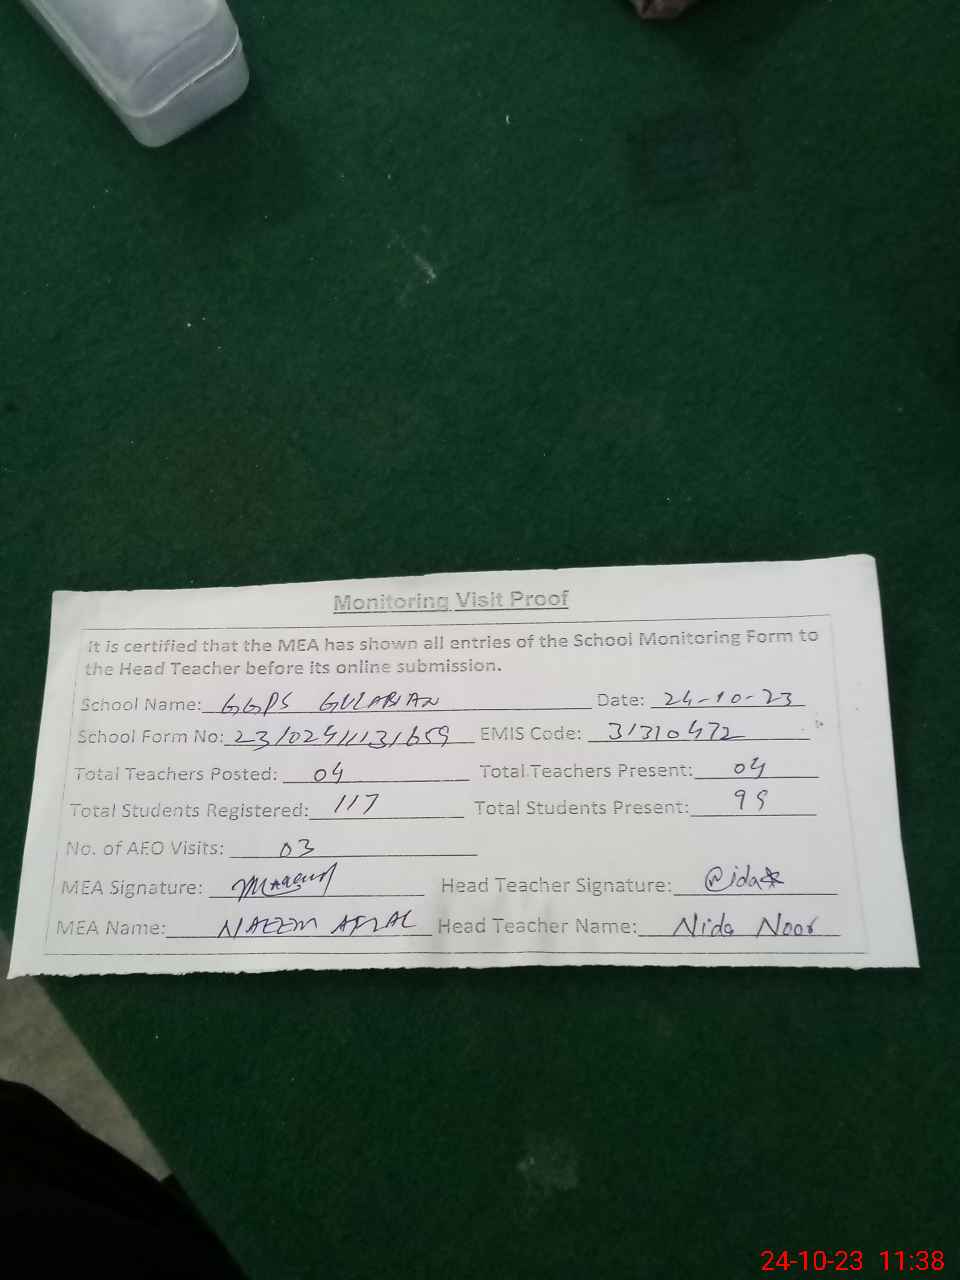 Monitoring Visit Proof
It is certified that the MEA has shown all entries of the School Monitoring Form to
the Head Teacher before its online submission.
School Name: GGPS GULABIAN Date: 24-10-23
School Form No: EMIS Code: 31310472
Total Teachers Posted: 04 Total Teachers Present: 04
Total Students Registered: 117 Total Students Present:
No. of AEO Visits: 03
MEA Signature: Head Teacher Signature:
MEA Name: NAEEM AFZAL Head Teacher Name: Nida Noor
24-10-23 11:38